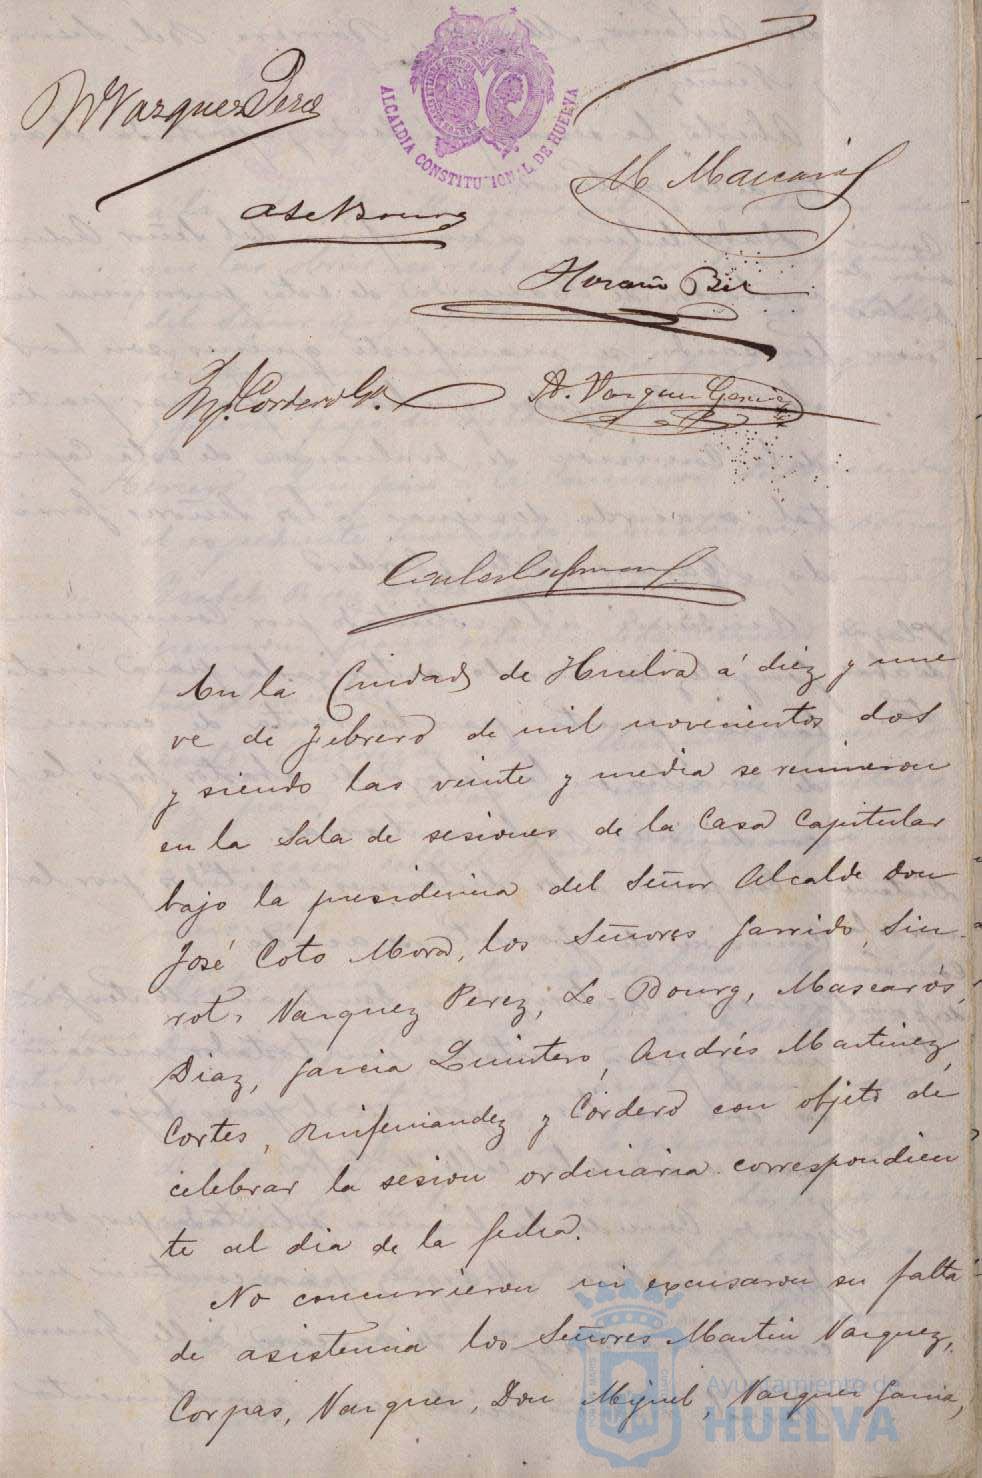 M Vazquez Perez
ALCALDIA CONSTITUCIONAL DE HUELVA
M Mascarós
A Le Bourg
Horacio Bel
A. Vazquez Garcia
En la Ciudad de Huelva á diez y nue
ve de Febrero de mil novecientos dos
y siendo las veinte y media se reunieron
en la Sala de sesiones de la Casa Capitular
bajo la presidencia del Señor Alcalde Don
José Coto Mora, los Señores Garrido, Sin
rot, Vazquez Perez, Le Bourg, Mascarós,
Diaz, Garcia Quintero, Andrés Martinez,
Cortes, Ruifernandez y Cordero con objeto de
celebrar la sesion ordinaria correspondien
te al dia de la fecha.
No concurrieron ni excusaron su falta
de asistencia los Señores Martin Vazquez,
Corpas, Vazquez, Don Miguel, Vazquez Garcia,
Ayuntamiento de
HUELVA